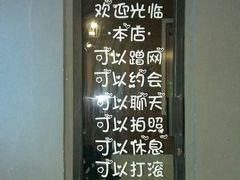 欢迎光临
·本店·
可以蹭网
可以约会
可以聊天
可以拍照
可以休息
可以打滚